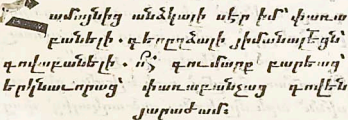 ամայնից անձկալի սէր իմ՝ փառա
բանելի . գեղըղձալի յիմանալեցն՝
գովաբանելի . ո՛չ գումարք բարեաց՝
երկնաւորաց՝ փառաբանչաց գովեն
յարաժամ։